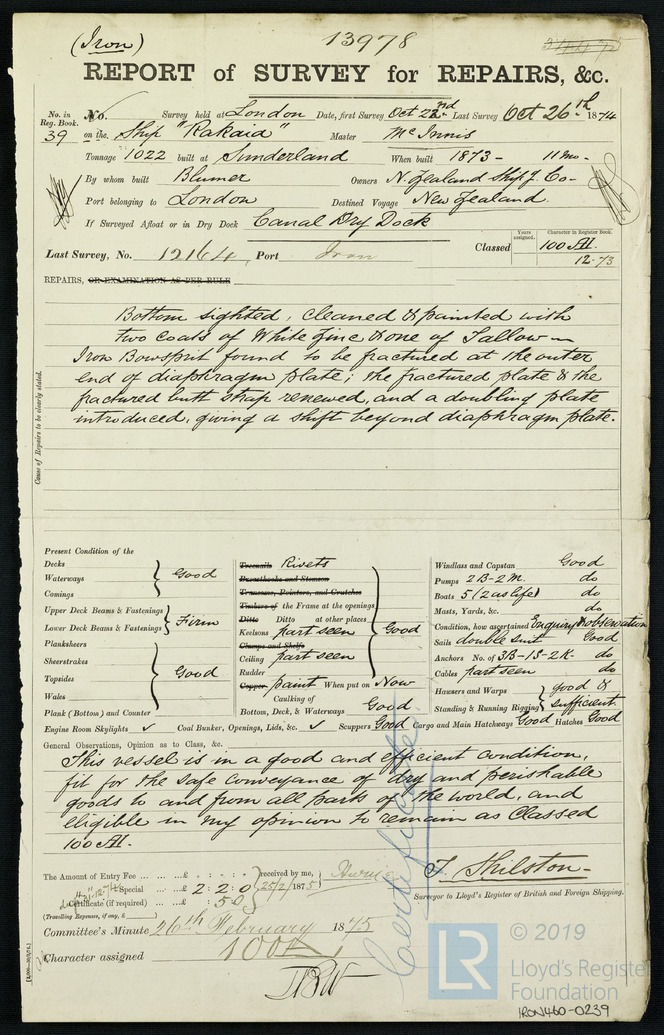 (Iron)
13978
REPORT of SURVEY for REPAIRS, &c.
No. in Reg. Book. 39
No. Survey held at London Date, first Survey Oct 22nd Last Survey Oct 26th 1874
on the Ship "Rakaia" Master McInnis
Tonnage 1022 built at Sunderland When built 1873 - 11mo -
By whom built Blumer Owners N. Zealand Ship'g Co -
Port belonging to London Destined Voyage New Zealand.
If Surveyed Afloat or in Dry Dock Canal Dry Dock
Years assigned. Character in Register Book.
Last Survey, No. 12164, Port Iron Classed 100 A1.
12-73
REPAIRS, OR EXAMINATION AS PER RULE
Bottom sighted, cleaned & painted with
two coats of White Zinc & one of Tallow -
Iron Bowsprit found to be fractured at the outer
end of diaphragm plate; the fractured plate & the
fractured butt strap renewed, and a doubling plate
introduced, giving a shift beyond diaphragm plate.
Causes of Repairs to be clearly stated.
Present Condition of the
Decks
Waterways
Comings
Good
Upper Deck Beams & Fastenings
Lower Deck Beams & Fastenings
Firm
Planksheers
Sheerstrakes
Topsides
Wales
Good
Plank (Bottom) and Counter
Treenails Rivets
Breasthooks and Stemson
Transoms, Pointers, and Crutches
Timbers of the Frame at the openings
Ditto Ditto at other places
Keelsons part seen
Clamps and Shelfs
Ceiling part seen
Rudder
Good
Copper paint When put on Now
Caulking of
Bottom, Deck, & Waterways Good
Windlass and Capstan Good
Pumps 2B-2M. do
Boats 5 (2 as life) do
Masts, Yards, &c. do
Condition, how ascertained Enquiry & observation
Sails double suit Good
Anchors No. of 3B-1S-2K- do
Cables part seen do
Hawsers and Warps
Standing & Running Rigging
good & sufficient
Engine Room Skylights ✓ Coal Bunker, Openings, Lids, &c. ✓ Scuppers Good Cargo and Main Hatchways Good Hatches Good
General Observations, Opinion as to Class, &c.
This vessel is in a good and efficient condition,
fit for the safe conveyance of dry and perishable
goods to and from all parts of the world, and
eligible in my opinion to remain as Classed
100 A1.
Certificate
The Amount of Entry Fee ... ... £ : : received by me,
Special ... £ 2 : 2 : 0 25/2/1875
Certificate (if required) .. £ : 5 : 0
(Travelling Expenses, if any, £ )
T. Shilston -
Surveyor to Lloyd's Register of British and Foreign Shipping.
Committee's Minute 26th February 1875
Character assigned 100A
© 2019
LR
Lloyd's Register
Foundation
IRON460-0239